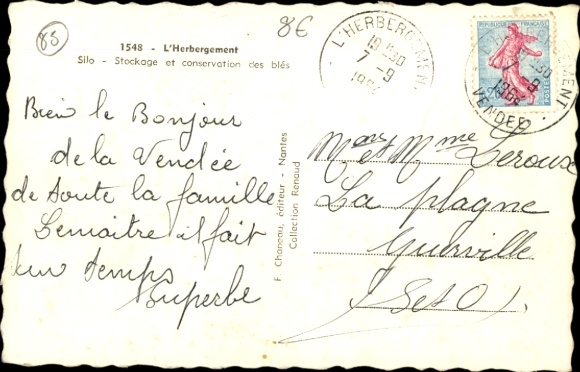 85
8€
1548 - L'Herbergement
Silo - Stockage et conservation des blés
L'HERBERGEMENT
19 H30
7 - 9
VENDEE
POSTES
Bien le Bonjour
de la Vendée
de toute la famille
Lemaitre il fait
un temps
Superbe
F. Chaneau, éditeur - Nantes
Collection Renaud
Mr et Mme Leroux
La plagne
Guerville
(S et O).